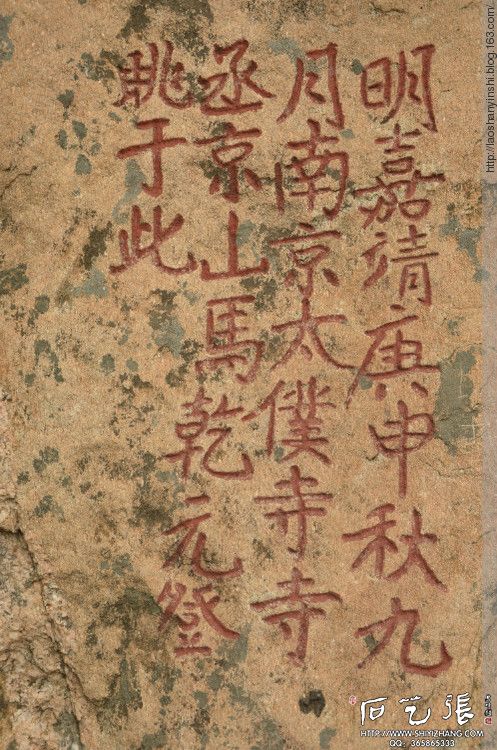 明嘉靖庚申秋九
月南京太僕寺寺
丞京山馬乾元登
眺于此
http://laoshanyinshi.blog.163.com/
張艺石
HTTP://WWW.SHIYIZHANG.COM
QQ: 365865333